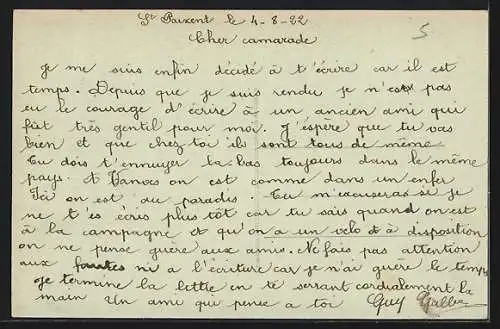 St Paixent le 4-8-22
5
Cher camarade
Je me suis enfin décidé à t'écrire car il est
temps. Depuis que je suis rendu je n'est pas
eu le courage d'écrire à un ancien ami qui
fût très gentil pour moi. J'éspère que tu vas
bien et que chez toi ils sont tous de même
Tu dois t'ennuyer la-bas toujours dans le même
pays. A Vanves on est comme dans un enfer
Ici on est au paradis. Tu m'excuseras si je
ne t'es écris plus tôt car tu sais quand on est
à la campagne et qu'on a un vélo à disposition
on ne pense guère aux amis. Ne fais pas attention
aux fautes ni a l'écriture car je n'ai guère le temps
Je termine la lettre en te serrant cordialement la
main Un ami qui pense a toi Guy